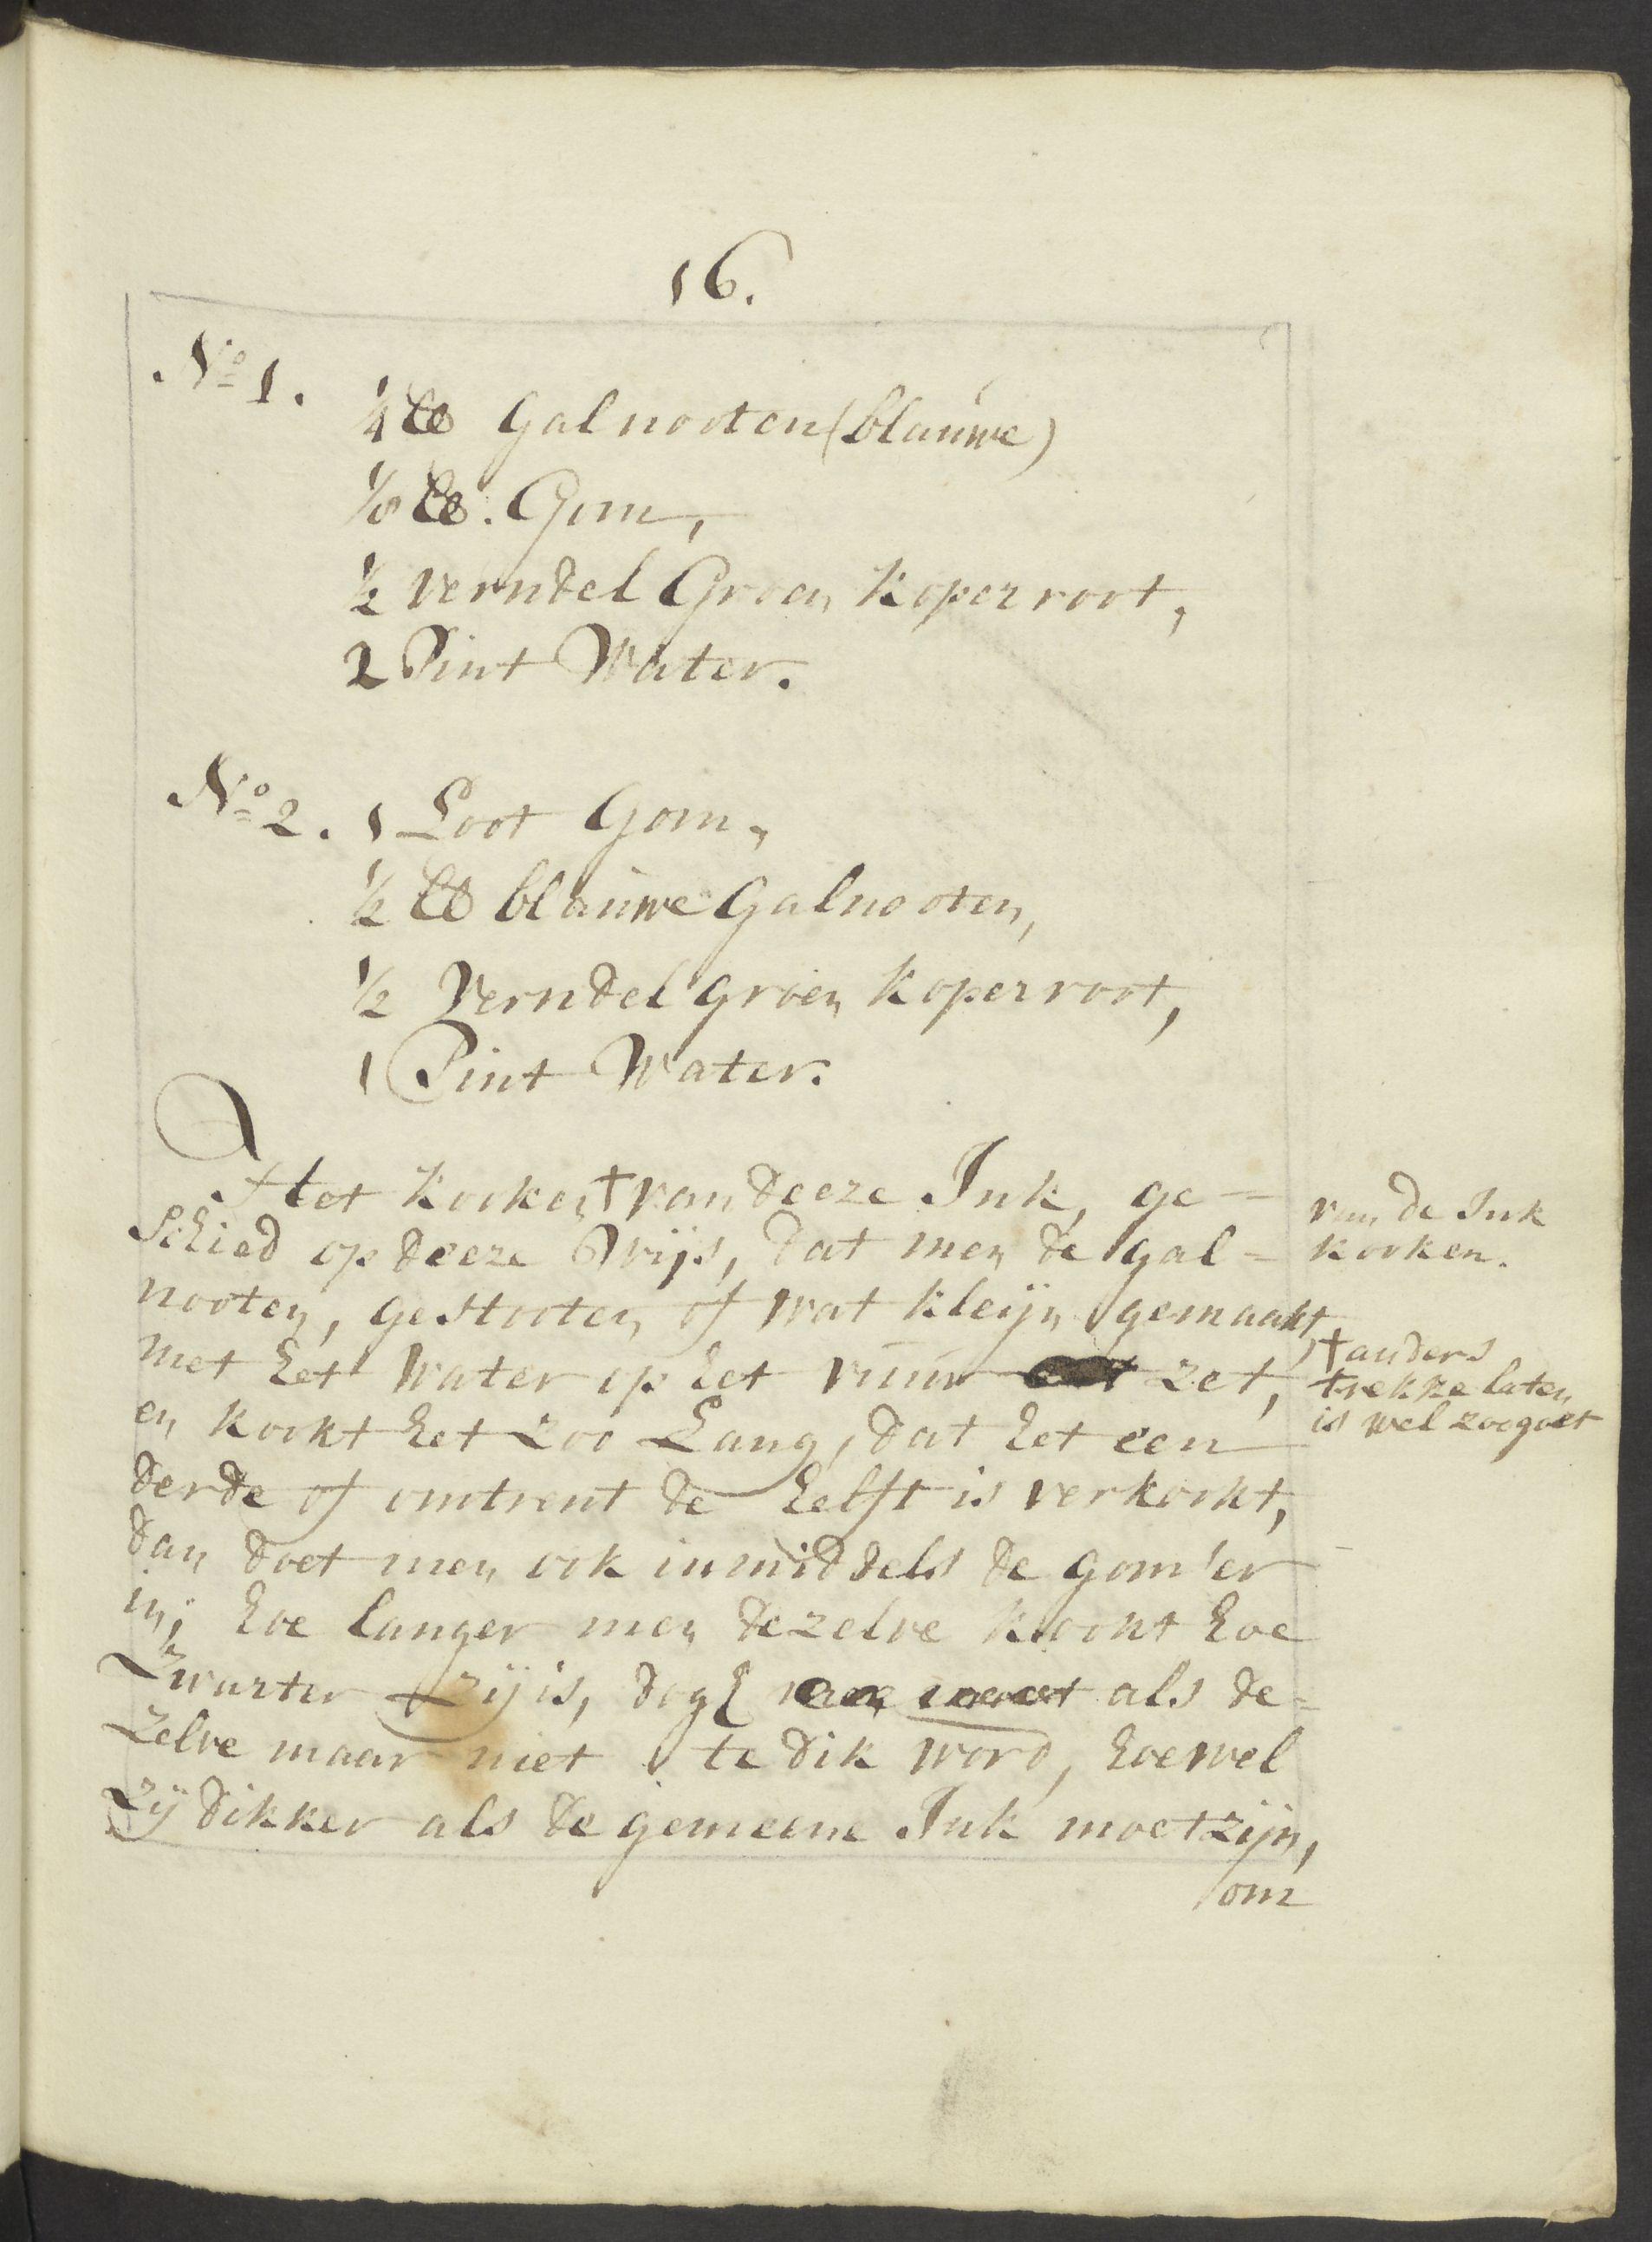 16.
No 1.
¼ ℔ Galnooten (blauwe)
⅛ ℔. Gom,
½ verndel Groen koperroot,
2 Pint Water.
No 2. 1 Loot Gom,
½ ℔ blauwe Galnooten,
½ Verndel groen koperroot,
1 Pint Water.
Het kooken † van deeze Ink, ge=
schied op deeze Wijs, dat men de gal=
nooten, gestooten of wat kleijn gemaakt,
met het water op het vuur zet,
en kookt het zoo Lang, dat het een
derde of omtrent de helft is verkookt,
dan doet men ook inmiddels de gom 'er
in; hoe langer men dezelve kookt hoe
zwarter zij is, dogh als de=
zelve maar niet te dik word, hoewel
zij dikker als de gemeene Ink moet zijn,
om
van de Ink
kooken.
† anders
trekke laten
is wel zoo goet